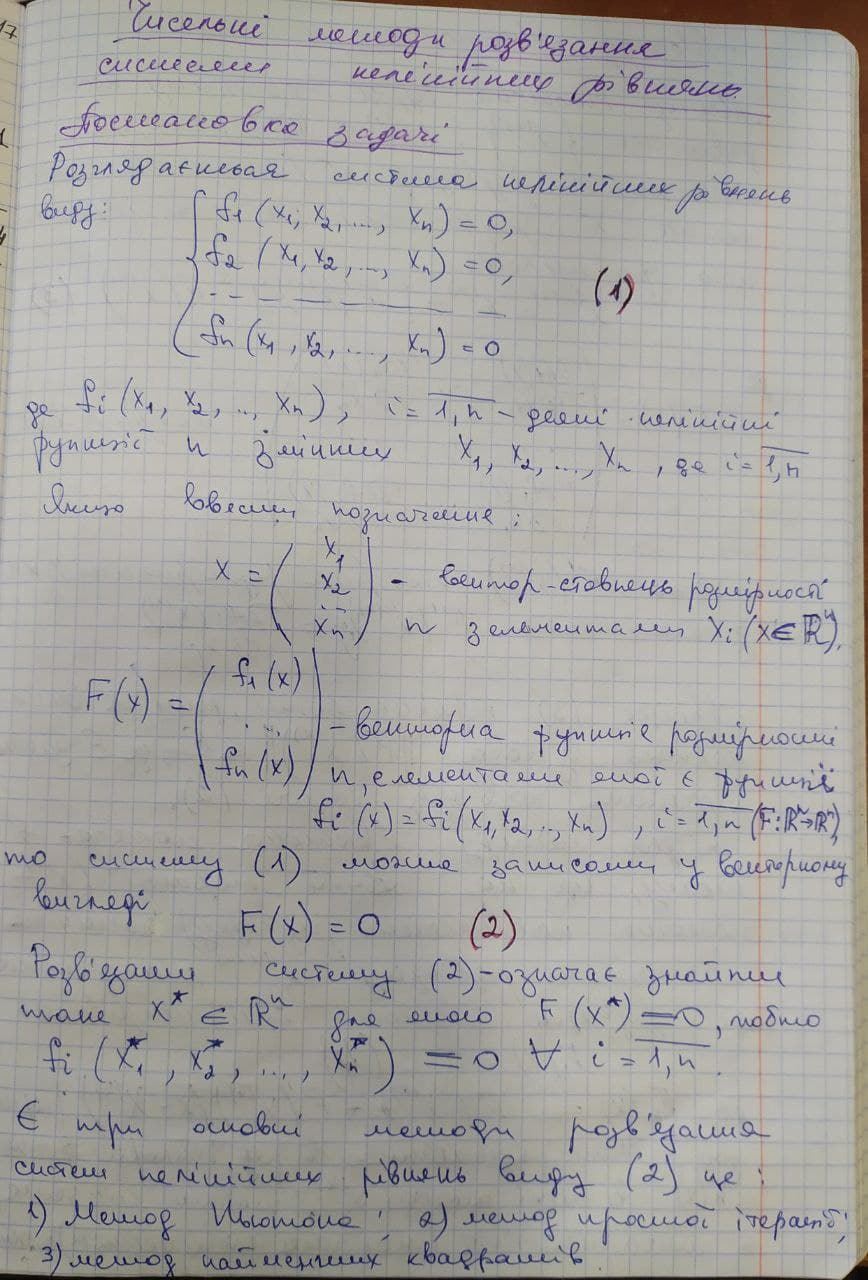 17
Чисельні методи розв'язання
системи нелінійних рівнянь.
Постановка задачі
Розглядається система нелінійних рівнянь
виду:
f1 (x1, x2, ..., xn) = 0,
f2 (x1, x2, ..., xn) = 0,
(1)
fn (x1, x2, ..., xn) = 0
де fi (x1, x2, .., xn), i = 1,n - деякі нелінійні
функції n змінних x1, x2, ..., xn, де i = 1,n
Якщо ввести позначення:
x = (x1 x2 ... xn) - вектор-стовпець розмірності
n з елементами xi (x ∈ ℝⁿ),
F(x) = (f1(x) ... fn(x)) - векторна функція розмірності
n, елементами якої є функції
fi (x) = fi (x1, x2, .., xn), i = 1,n (F: ℝⁿ→ℝⁿ),
то систему (1) можна записати у векторному
вигляді
F(x) = 0 (2)
Розв'язати систему (2) - означає знайти
таке x* ∈ ℝⁿ для якого F(x*) = 0, тобто
fi (x1*, x2*, ..., xn*) = 0 ∀ i = 1,n.
Є три основні методи розв'язання
систем нелінійних рівнянь виду (2) це:
1) Метод Ньютона; 2) метод простої ітерації;
3) метод найменших квадратів